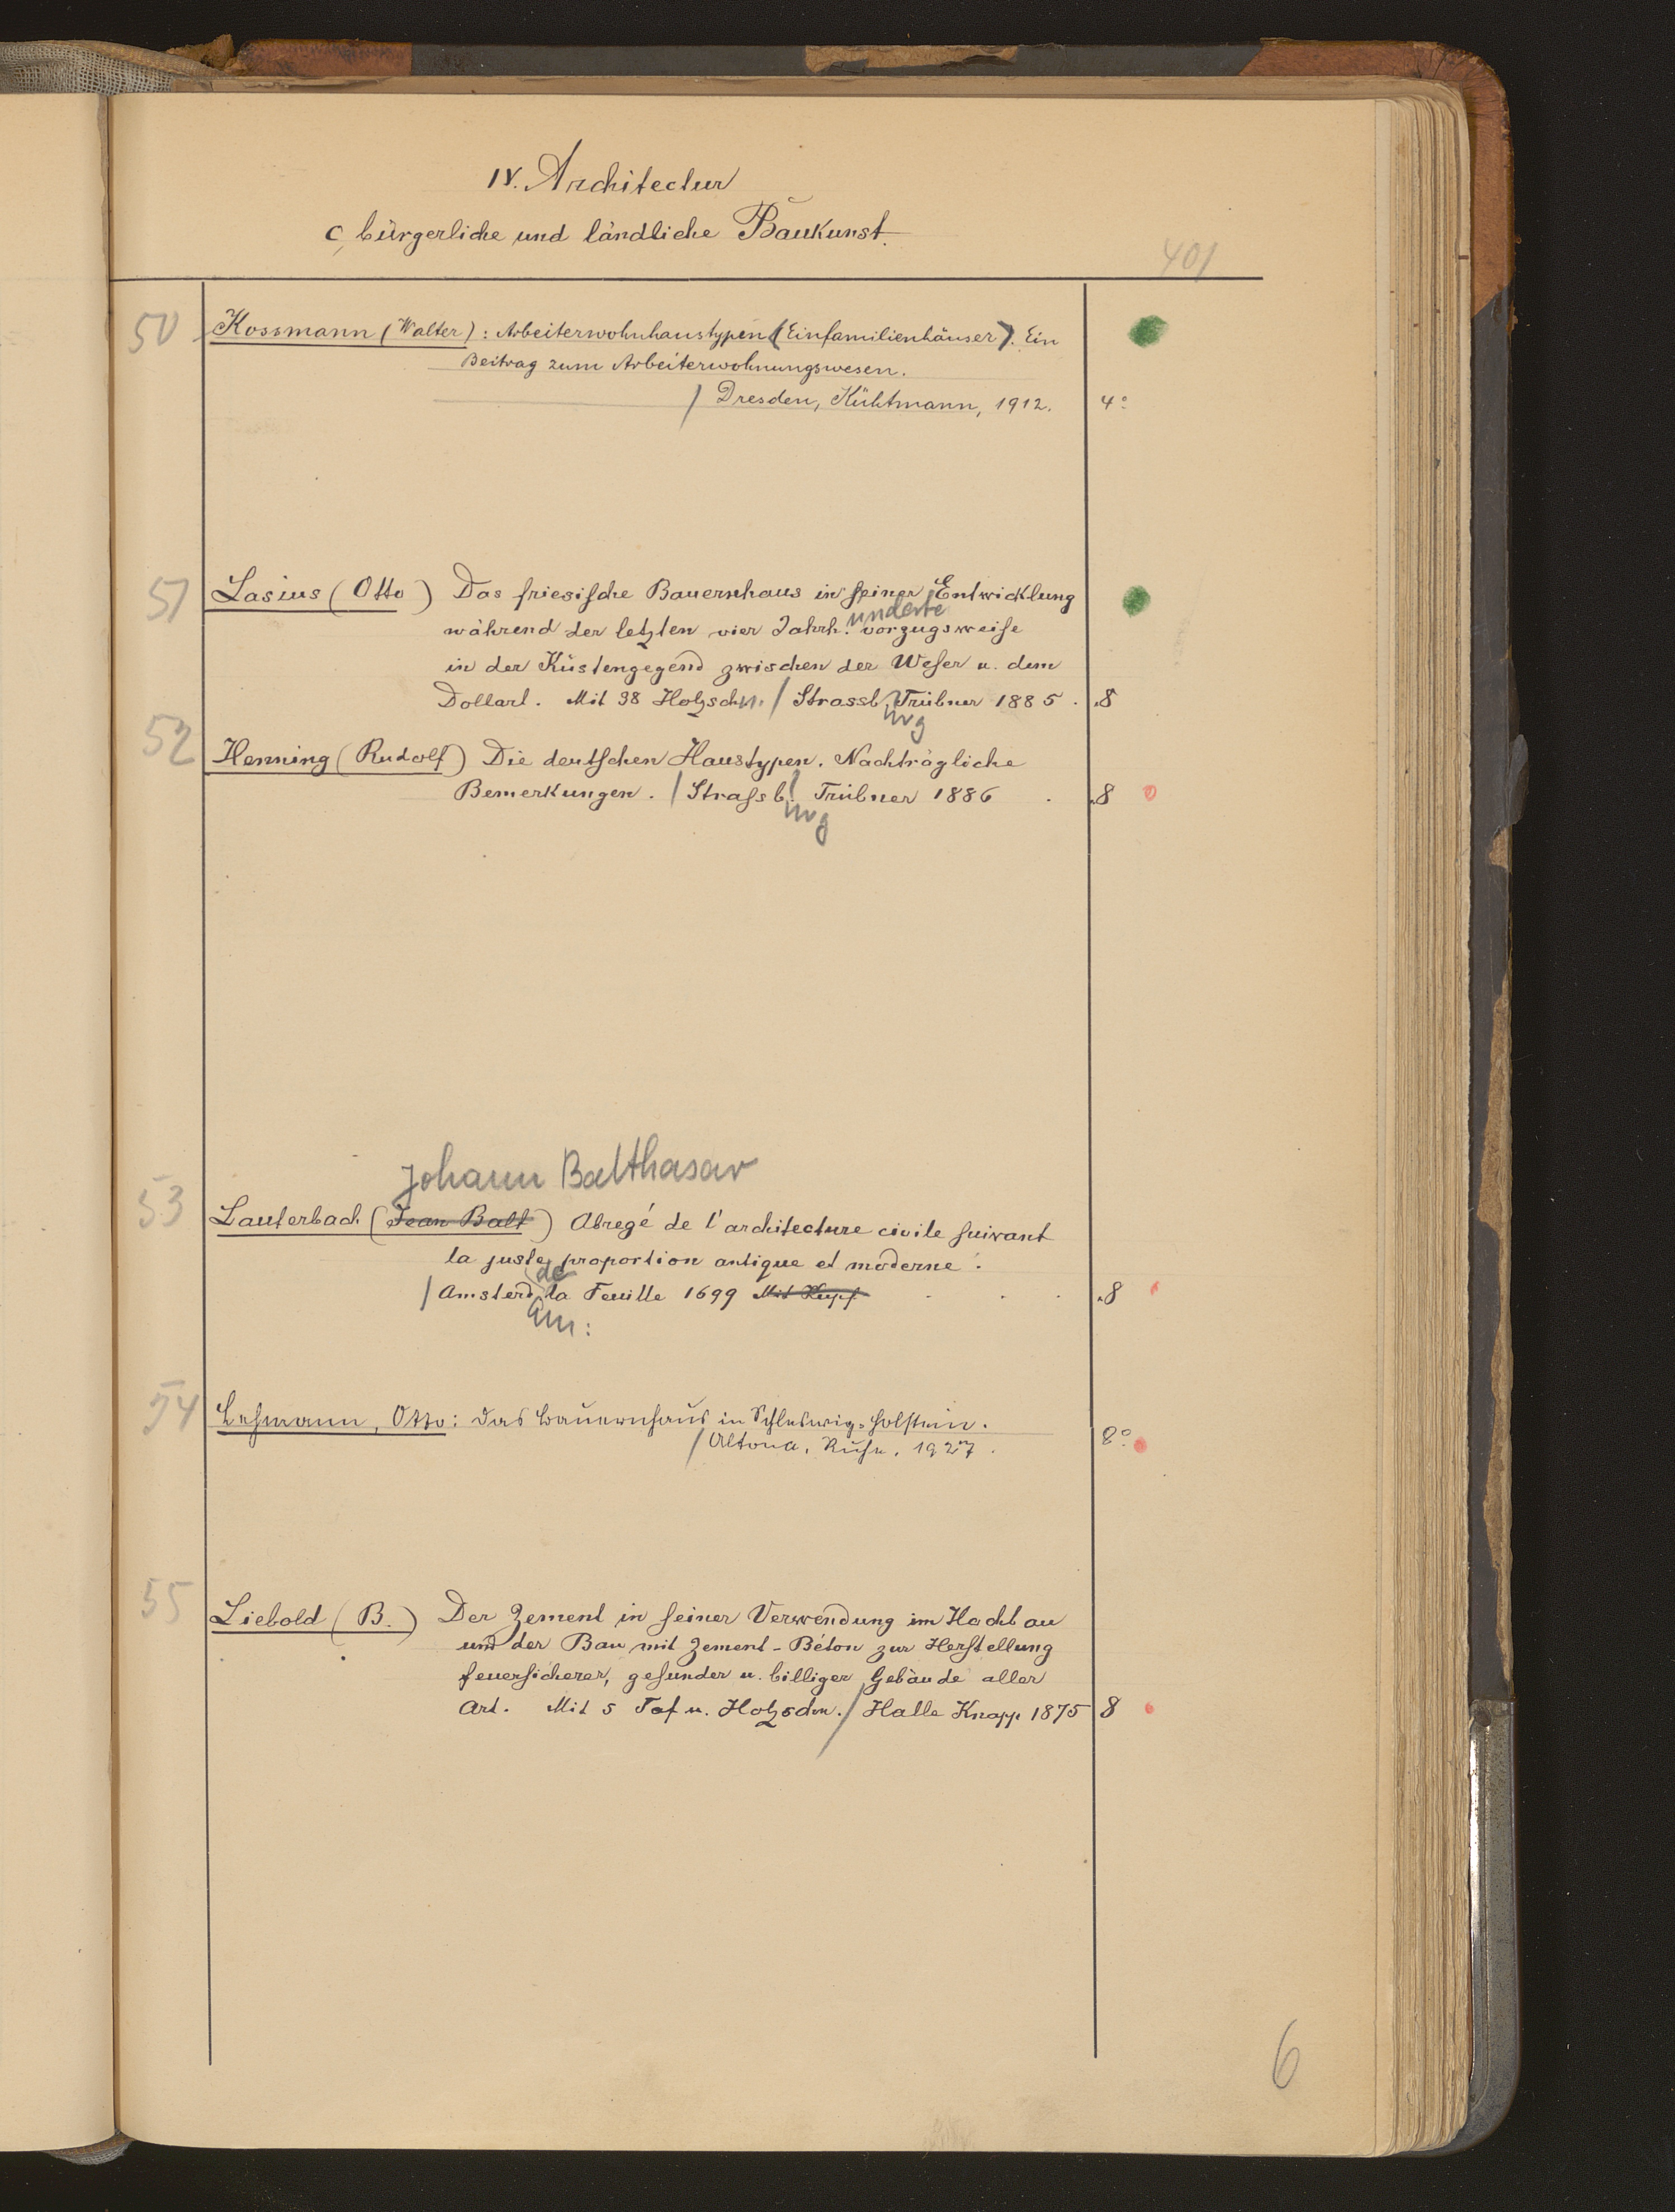 IV. Architectur
c, bürgerliche und ländliche Baukunst.
401
50 Kossmann (Walter): Arbeiterwohnhaustypen (Einfamilienhäuser). Ein
Beitrag zum Arbeiterwohnungswesen.
/ Dresden, Kühtmann, 1912. 4°
51 Lasius (Otto) Das friesische Bauernhaus in seiner Entwicklung
underte
während der letzten vier Jahrh. vorzugsweise
in der Küstengegend zwischen der Weser u. dem
Dollart. Mit 38 Holzschn. / Strassb. Trübner 1885. 8
urg
52 Henning (Rudolf) Die deutschen Haustypen. Nachträgliche
Bemerkungen. / Strassb. Trübner 1886 . 8
urg
Johann Balthasar
53 Lauterbach (Jean Balt) Abregé de l'architecture civile suivant
la juste proportion antique et moderne.
de
/ Amsterd. la Feuille 1699 Mit Kupf . . . 8
am:
54 Lehmann, Otto: Das Bauernhaus in Schleswig-Holstein.
/ Altona, Ruhe, 1927. 8°
55 Liebold (B.) Der Zement in seiner Verwendung im Hochbau
und der Bau mit Zement-Béton zur Herstellung
feuersicherer, gesunder u. billiger Gebäude aller
Art. Mit 5 Taf u. Holzschn. / Halle Knapp 1875 8
6